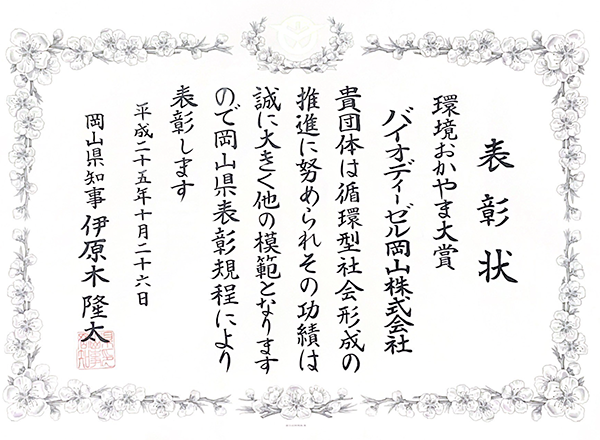 表彰状
環境おかやま大賞
バイオディーゼル岡山株式会社
貴団体は循環型社会形成の
推進に努められその功績は
誠に大きく他の模範となります
ので岡山県表彰規程により
表彰します
平成二十五年十月二十六日
岡山県知事 伊原木隆太